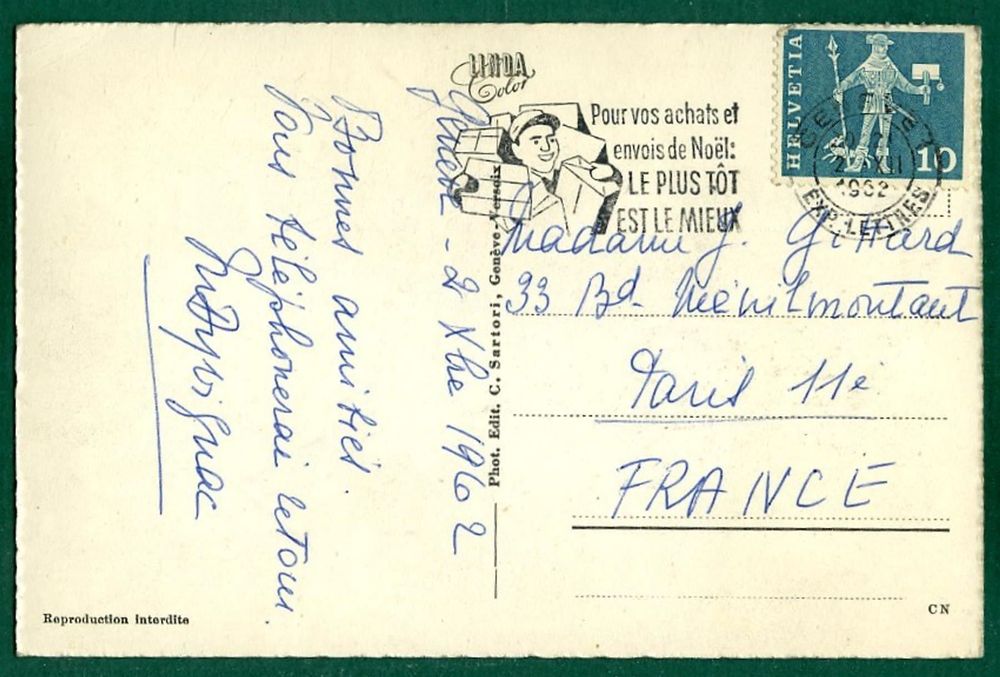 LINDA
Color
Genève - 2 Xbre 1962
Bonnes amitiés.
Vous téléphonerai retour.
Pour vos achats et
envois de Noël:
LE PLUS TÔT
EST LE MIEUX
HELVETIA
10
1962
EXP. LETTRES
Madame J.
33 Bd Ménilmontant
Paris 11è
FRANCE
Phot. Edit. C. Sartori, Genève-Versoix
Reproduction interdite
CN